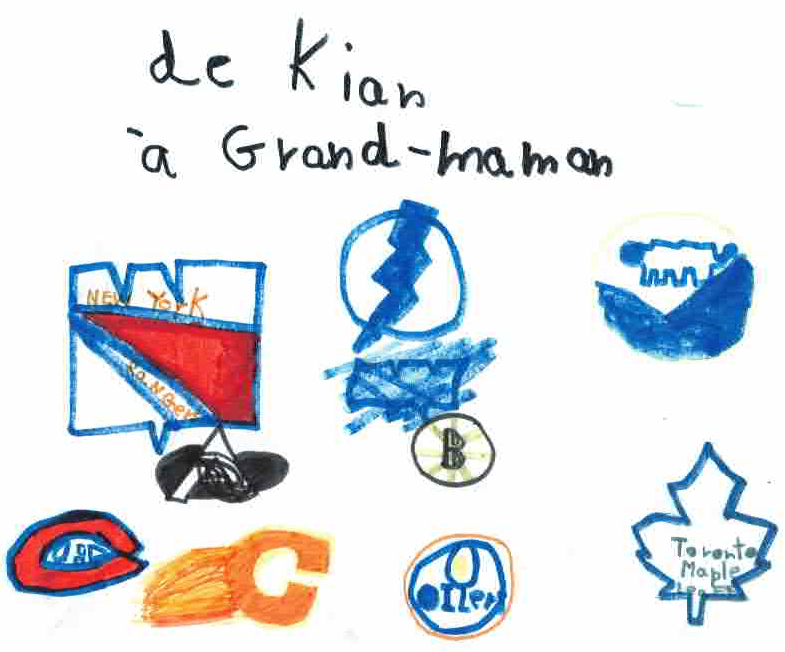 de Kian
à Grand-maman
NEW YorK
ranger
B
C
OILers
Toronto
Maple
Leafs